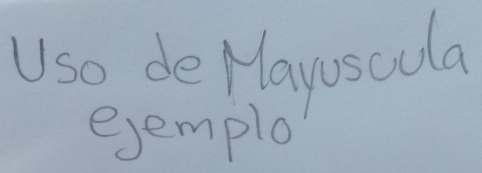 Uso de Mayuscula
ejemplo